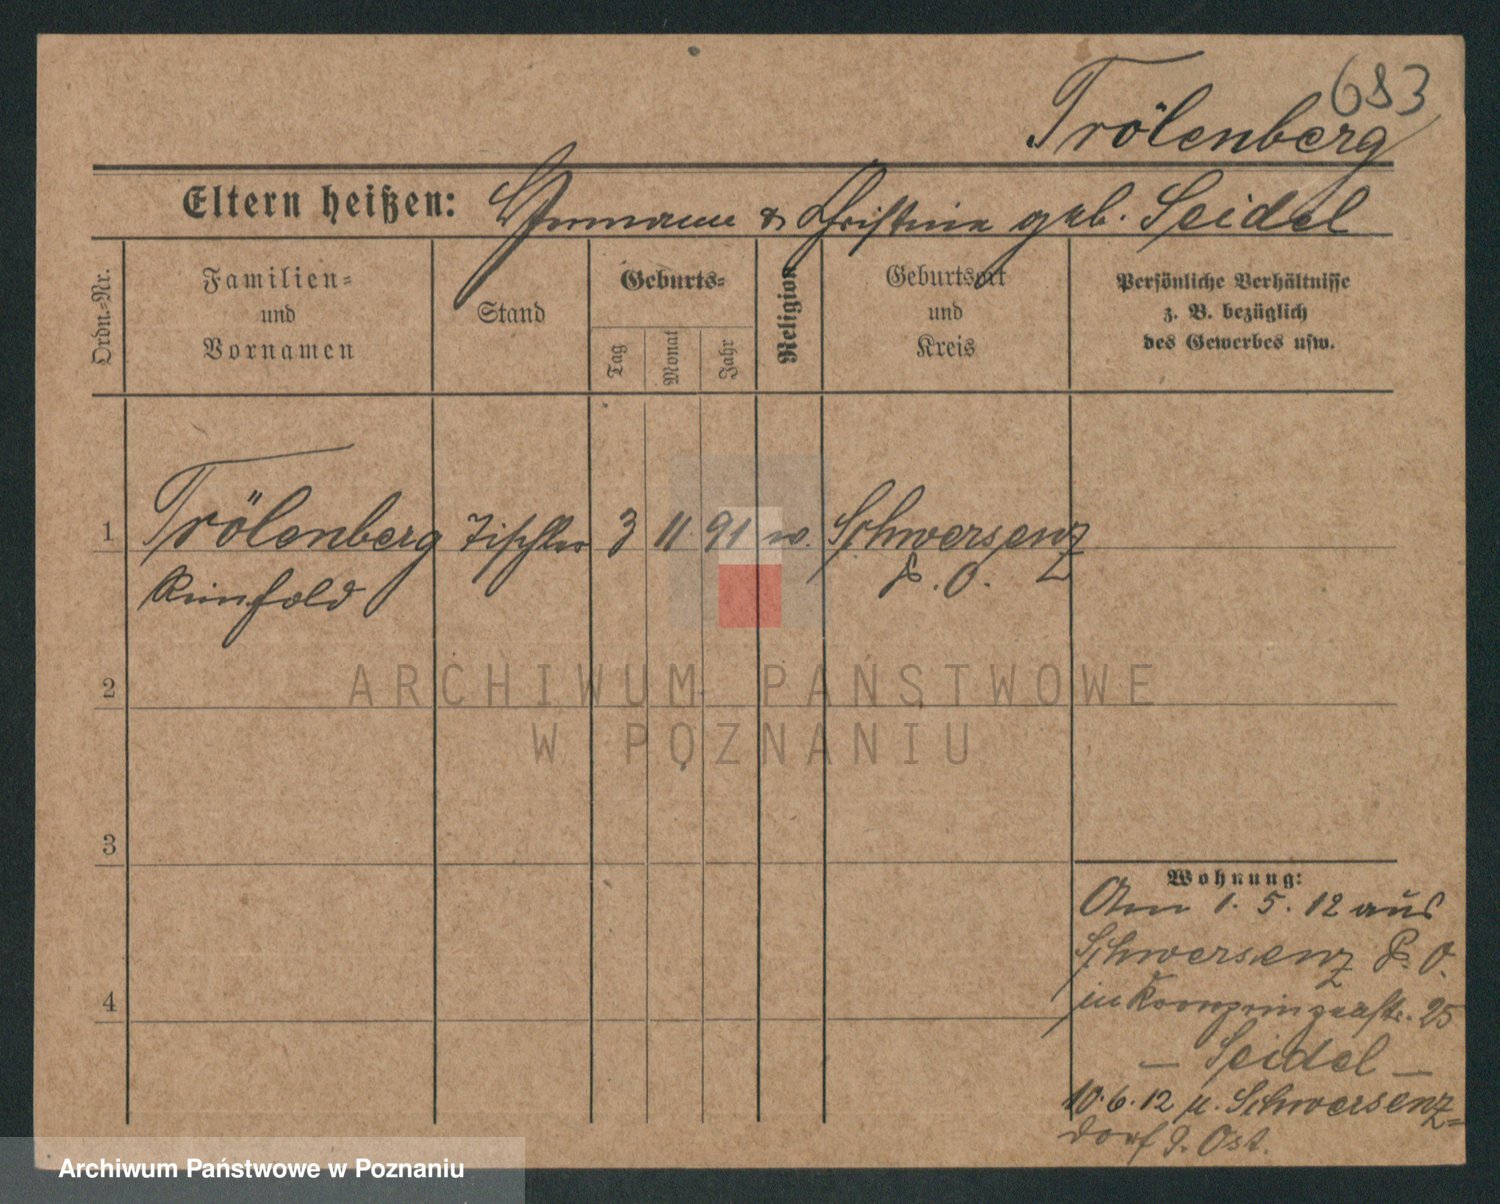 683
Trölenberg
Eltern heißen: Hermann & Christine geb. Seidel
Ordn.-Nr.
Familien-
und
Vornamen
Stand
Geburts-
Tag
Monat
Jahr
Religion
Geburtsort
und
Kreis
Persönliche Verhältnisse
z. B. bezüglich
des Gewerbes usw.
1 Trölenberg Tischler 3 11 91 Schwersenz
Reinhold P. O.
2
ARCHIWUM PAŃSTWOWE
W POZNANIU
3
Wohnung:
Am 1. 5. 12 aus
Schwersenz P. O.
in Kronprinzenstr. 25
— Seidel —
10. 6. 12 n. Schwersenz-
dorf P. Ost.
4
Archiwum Państwowe w Poznaniu